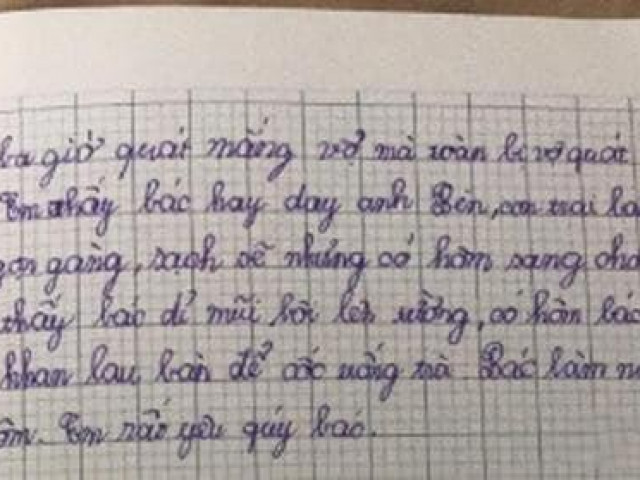 giờ quát mắng vợ mà toàn bị vợ quát
Em thấy bác hay dạy anh Bền, con trai
gàng, sạch sẽ nhưng có hôm sang
thấy bác dỉ mũi bôi lên tường, có hôm bác
khăn lau bàn để cốc uống trà Bác làm
Em rất yêu quý bác.